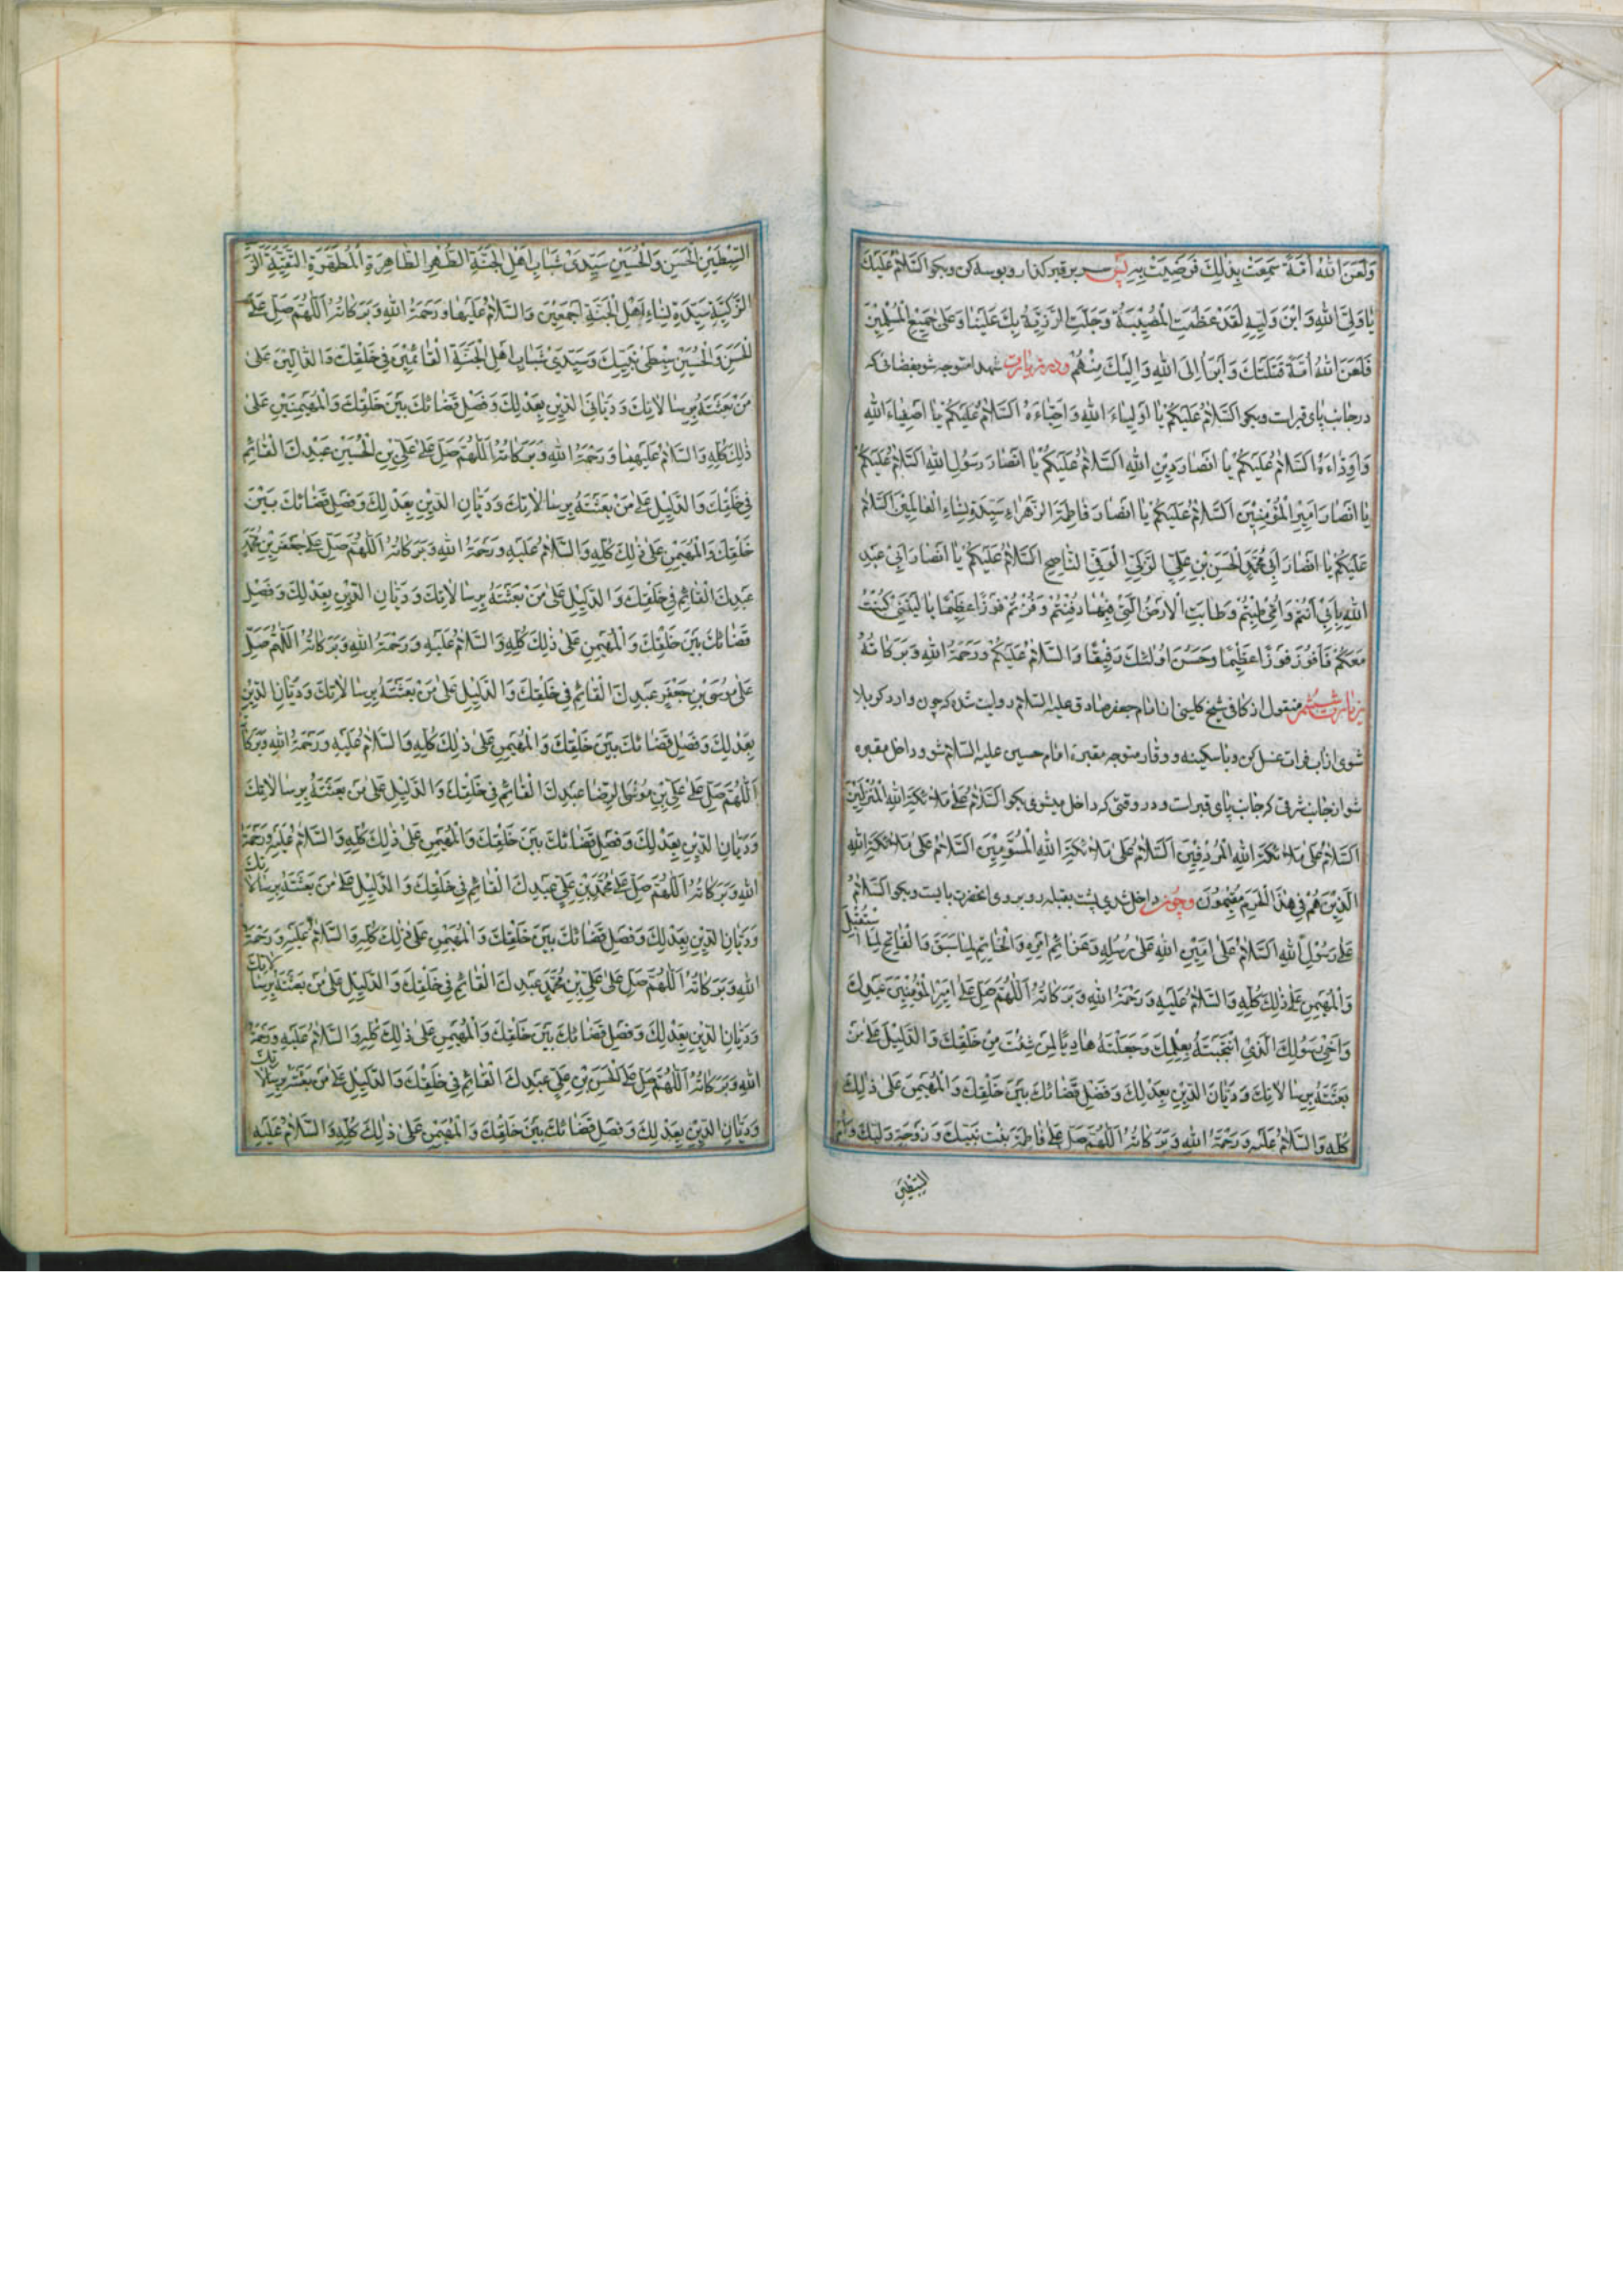 وَلَعَنَ اللهُ اُمَّةً سَمِعَتْ بِذٰلِكَ فَرَضِيَتْ بِهِ پس سر بر قبر گذار و بوسه کن و بگو اَلسَّلامُ عَلَيْكَ
يا وَلِيَّ اللهِ وَابْنَ وَلِيِّهِ لَقَدْ عَظُمَتِ الْمُصيبَةُ وَجَلَّتِ الرَّزِيَّةُ بِكَ عَلَيْنا وَعَلىٰ جَميعِ الْمُسْلِمينَ
فَلَعَنَ اللهُ اُمَّةً قَتَلَتْكَ وَاَبْرَأُ اِلَى اللهِ وَاِلَيْكَ مِنْهُمْ ودر زیارت شهدا متوجه شو بفضائی که
در جانب پای قبر است و بگو اَلسَّلامُ عَلَيْكُمْ يا اَوْلِياءَ اللهِ وَاَحِبّاءَهُ اَلسَّلامُ عَلَيْكُمْ يا اَصْفِياءَ اللهِ
وَاَوِدّاءَهُ اَلسَّلامُ عَلَيْكُمْ يا اَنْصارَ دينِ اللهِ اَلسَّلامُ عَلَيْكُمْ يا اَنْصارَ رَسُولِ اللهِ اَلسَّلامُ عَلَيْكُمْ
يا اَنْصارَ اَميرِ الْمُؤْمِنينَ اَلسَّلامُ عَلَيْكُمْ يا اَنْصارَ فاطِمَةَ الزَّهْراءِ سَيِّدَةِ نِساءِ الْعالَمينَ اَلسَّلامُ
عَلَيْكُمْ يا اَنْصارَ اَبي مُحَمَّدٍ الْحَسَنِ بْنِ عَلِيٍّ الزَّكِيِّ الْوَفِيِّ النّاصِحِ اَلسَّلامُ عَلَيْكُمْ يا اَنْصارَ اَبي عَبْدِ
اللهِ بِاَبي اَنْتُمْ وَاُمّي طِبْتُمْ وَطابَتِ الْاَرْضُ الَّتي فيها دُفِنْتُمْ وَفُزْتُمْ فَوْزًا عَظيمًا يا لَيْتَني كُنْتُ
مَعَكُمْ فَاَفُوزَ فَوْزًا عَظيمًا وَحَسُنَ اُولٰئِكَ رَفيقًا وَالسَّلامُ عَلَيْكُمْ وَرَحْمَةُ اللهِ وَبَرَكاتُهُ
زیارت ششم منقول از کافی شیخ کلینی از امام جعفر صادق علیه السلام روایت شده که چون وارد کربلا
شوی از آب فرات غسل کن و با سکینه و وقار متوجه مقبره امام حسین علیه السلام شو و داخل مقبره
شو از جانب شرقی که جانب پای قبر است و در وقتی که داخل میشوی بگو اَلسَّلامُ عَلىٰ مَلائِكَةِ اللهِ الْمُنْزَلينَ
اَلسَّلامُ عَلىٰ مَلائِكَةِ اللهِ الْمُرْدِفينَ اَلسَّلامُ عَلىٰ مَلائِكَةِ اللهِ الْمُسَوِّمينَ اَلسَّلامُ عَلىٰ مَلائِكَةِ اللهِ
الَّذينَ هُمْ في هٰذَا الْحَرَمِ مُقيمُونَ وچون داخل شدی پشت بقبله رو بروی انحضرت بایست و بگو اَلسَّلامُ
عَلىٰ رَسُولِ اللهِ اَلسَّلامُ عَلىٰ اَمينِ اللهِ عَلىٰ رُسُلِهِ وَعَزائِمِ اَمْرِهِ وَالْخاتِمِ لِما سَبَقَ وَالْفاتِحِ لِمَا اسْتُقْبِلَ
وَالْمُهَيْمِنِ عَلىٰ ذٰلِكَ كُلِّهِ وَالسَّلامُ عَلَيْهِ وَرَحْمَةُ اللهِ وَبَرَكاتُهُ اَللّٰهُمَّ صَلِّ عَلىٰ اَميرِ الْمُؤْمِنينَ عَبْدِكَ
وَاَخي رَسُولِكَ الَّذِي انْتَجَبْتَهُ بِعِلْمِكَ وَجَعَلْتَهُ هادِيًا لِمَنْ شِئْتَ مِنْ خَلْقِكَ وَالدَّليلَ عَلىٰ مَنْ
بَعَثْتَهُ بِرِسالاتِكَ وَدَيّانَ الدّينِ بِعَدْلِكَ وَفَصْلِ قَضائِكَ بَيْنَ خَلْقِكَ وَالْمُهَيْمِنَ عَلىٰ ذٰلِكَ
كُلِّهِ وَالسَّلامُ عَلَيْهِ وَرَحْمَةُ اللهِ وَبَرَكاتُهُ اَللّٰهُمَّ صَلِّ عَلىٰ فاطِمَةَ بِنْتِ نَبِيِّكَ وَزَوْجَةِ وَلِيِّكَ وَاُمِّ
السِّبْطَيْنِ
السِّبْطَيْنِ الْحَسَنِ وَالْحُسَيْنِ سَيِّدَيْ شَبابِ اَهْلِ الْجَنَّةِ الطُّهْرِ الطّاهِرَةِ الْمُطَهَّرَةِ التَّقِيَّةِ
الزَّكِيَّةِ سَيِّدَةِ نِساءِ اَهْلِ الْجَنَّةِ اَجْمَعينَ وَالسَّلامُ عَلَيْها وَرَحْمَةُ اللهِ وَبَرَكاتُهُ اَللّٰهُمَّ صَلِّ عَلَى
الْحَسَنِ وَالْحُسَيْنِ سِبْطَيْ نَبِيِّكَ وَسَيِّدَيْ شَبابِ اَهْلِ الْجَنَّةِ الْقائِمَيْنِ في خَلْقِكَ وَالدّالَّيْنِ عَلىٰ
مَنْ بَعَثْتَهُ بِرِسالاتِكَ وَدَيّانَيِ الدّينِ بِعَدْلِكَ وَفَصْلِ قَضائِكَ بَيْنَ خَلْقِكَ وَالْمُهَيْمِنَيْنِ عَلىٰ
ذٰلِكَ كُلِّهِ وَالسَّلامُ عَلَيْهِما وَرَحْمَةُ اللهِ وَبَرَكاتُهُ اَللّٰهُمَّ صَلِّ عَلىٰ عَلِيِّ بْنِ الْحُسَيْنِ عَبْدِكَ الْقائِمِ
في خَلْقِكَ وَالدَّليلِ عَلىٰ مَنْ بَعَثْتَهُ بِرِسالاتِكَ وَدَيّانِ الدّينِ بِعَدْلِكَ وَفَصْلِ قَضائِكَ بَيْنَ
خَلْقِكَ وَالْمُهَيْمِنِ عَلىٰ ذٰلِكَ كُلِّهِ وَالسَّلامُ عَلَيْهِ وَرَحْمَةُ اللهِ وَبَرَكاتُهُ اَللّٰهُمَّ صَلِّ عَلىٰ جَعْفَرِ بْنِ مُحَمَّدٍ
عَبْدِكَ الْقائِمِ في خَلْقِكَ وَالدَّليلِ عَلىٰ مَنْ بَعَثْتَهُ بِرِسالاتِكَ وَدَيّانِ الدّينِ بِعَدْلِكَ وَفَصْلِ
قَضائِكَ بَيْنَ خَلْقِكَ وَالْمُهَيْمِنِ عَلىٰ ذٰلِكَ كُلِّهِ وَالسَّلامُ عَلَيْهِ وَرَحْمَةُ اللهِ وَبَرَكاتُهُ اَللّٰهُمَّ صَلِّ
عَلىٰ مُوسَى بْنِ جَعْفَرٍ عَبْدِكَ الْقائِمِ في خَلْقِكَ وَالدَّليلِ عَلىٰ مَنْ بَعَثْتَهُ بِرِسالاتِكَ وَدَيّانِ الدّينِ
بِعَدْلِكَ وَفَصْلِ قَضائِكَ بَيْنَ خَلْقِكَ وَالْمُهَيْمِنِ عَلىٰ ذٰلِكَ كُلِّهِ وَالسَّلامُ عَلَيْهِ وَرَحْمَةُ اللهِ وَبَرَكاتُهُ
اَللّٰهُمَّ صَلِّ عَلىٰ عَلِيِّ بْنِ مُوسَى الرِّضا عَبْدِكَ الْقائِمِ في خَلْقِكَ وَالدَّليلِ عَلىٰ مَنْ بَعَثْتَهُ بِرِسالاتِكَ
وَدَيّانِ الدّينِ بِعَدْلِكَ وَفَصْلِ قَضائِكَ بَيْنَ خَلْقِكَ وَالْمُهَيْمِنِ عَلىٰ ذٰلِكَ كُلِّهِ وَالسَّلامُ عَلَيْهِ وَرَحْمَةُ
اللهِ وَبَرَكاتُهُ اَللّٰهُمَّ صَلِّ عَلىٰ مُحَمَّدِ بْنِ عَلِيٍّ عَبْدِكَ الْقائِمِ في خَلْقِكَ وَالدَّليلِ عَلىٰ مَنْ بَعَثْتَهُ بِرِسالاتِكَ
وَدَيّانِ الدّينِ بِعَدْلِكَ وَفَصْلِ قَضائِكَ بَيْنَ خَلْقِكَ وَالْمُهَيْمِنِ عَلىٰ ذٰلِكَ كُلِّهِ وَالسَّلامُ عَلَيْهِ وَرَحْمَةُ
اللهِ وَبَرَكاتُهُ اَللّٰهُمَّ صَلِّ عَلىٰ عَلِيِّ بْنِ مُحَمَّدٍ عَبْدِكَ الْقائِمِ في خَلْقِكَ وَالدَّليلِ عَلىٰ مَنْ بَعَثْتَهُ بِرِسالاتِكَ
وَدَيّانِ الدّينِ بِعَدْلِكَ وَفَصْلِ قَضائِكَ بَيْنَ خَلْقِكَ وَالْمُهَيْمِنِ عَلىٰ ذٰلِكَ كُلِّهِ وَالسَّلامُ عَلَيْهِ وَرَحْمَةُ
اللهِ وَبَرَكاتُهُ اَللّٰهُمَّ صَلِّ عَلَى الْحَسَنِ بْنِ عَلِيٍّ عَبْدِكَ الْقائِمِ في خَلْقِكَ وَالدَّليلِ عَلىٰ مَنْ بَعَثْتَهُ بِرِسالاتِكَ
وَدَيّانِ الدّينِ بِعَدْلِكَ وَفَصْلِ قَضائِكَ بَيْنَ خَلْقِكَ وَالْمُهَيْمِنِ عَلىٰ ذٰلِكَ كُلِّهِ وَالسَّلامُ عَلَيْهِ